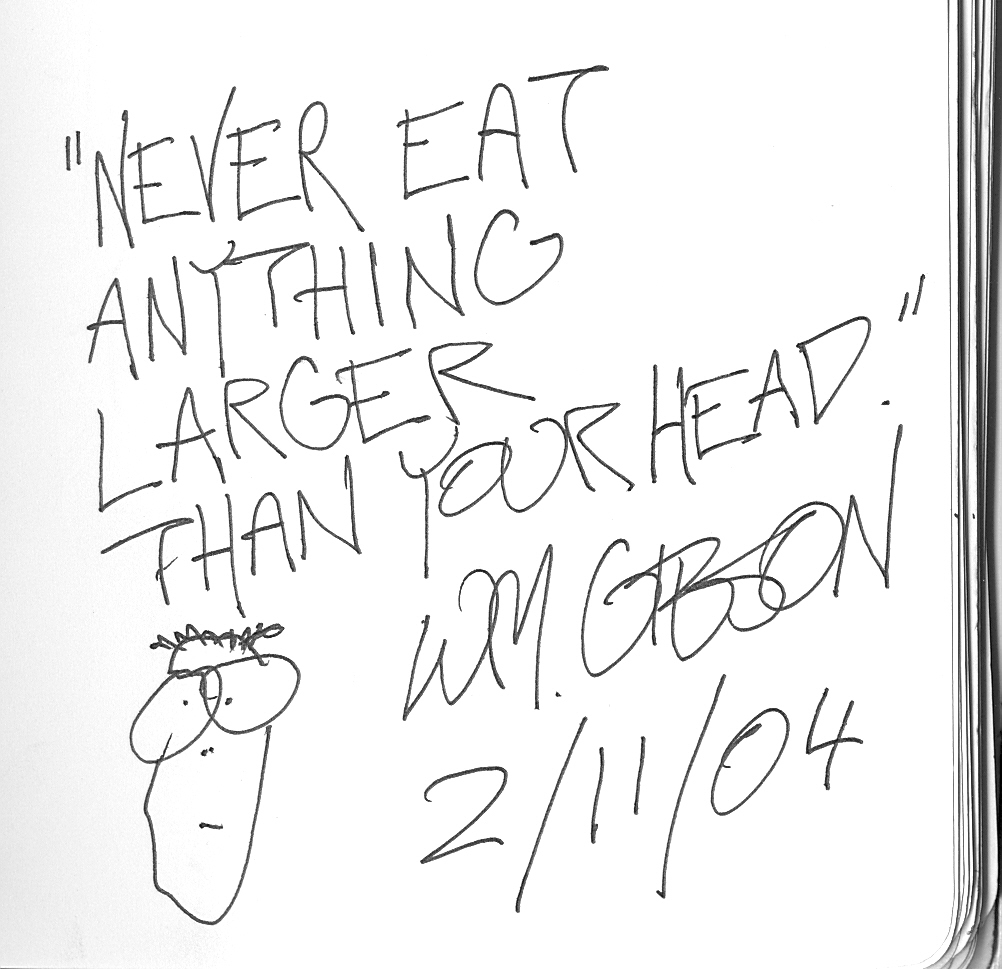 "NEVER EAT
ANYTHING
LARGER
THAN YOUR HEAD."
WM. GIBSON
2/11/04